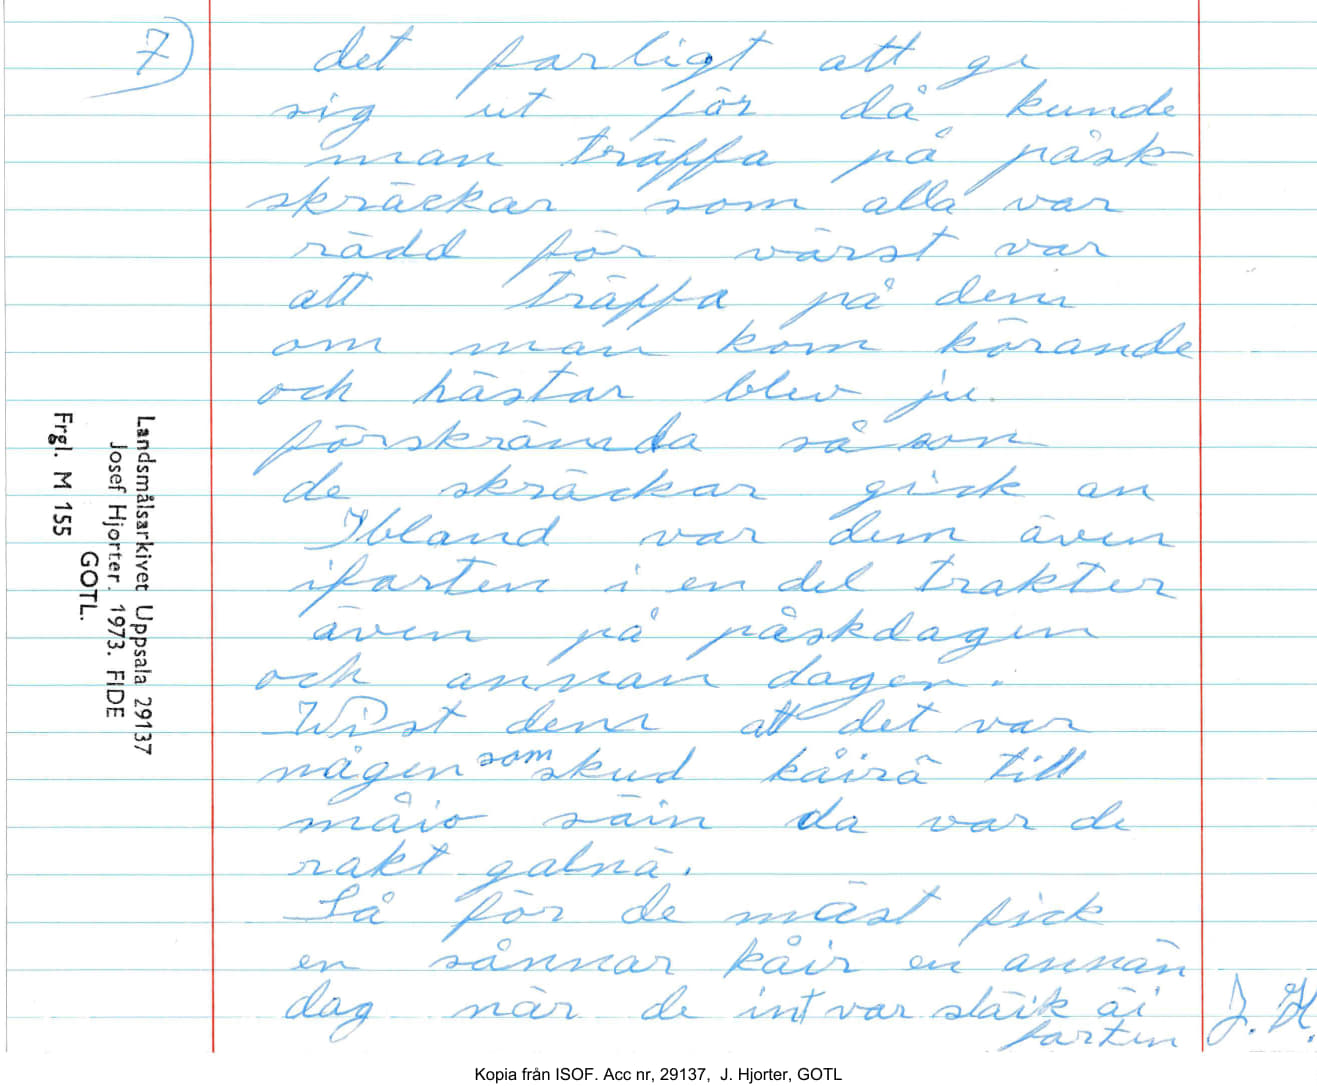 7)
det farligt att ge
sig ut för då kunde
man träffa på påsk-
skräckar som alla var
rädd för värst var
att träffa på dem
om man kom körande
och hästar blev ju
förskrämda så som
de skräckar gick an
Ibland var dem även
ifarten i en del trakter
även på påskdagen
och annan dagen.
Wist dem att det var
någen som skud kåirä till
måio säin da var de
rakt galnä.
Så för de mäst fick
en sånnar kåir en annän
dag när de int var släik äi
farten J. H.
Landsmålsarkivet Uppsala 29137
Josef Hjorter. 1973. FIDE
GOTL.
Frgl. M 155
Kopia från ISOF. Acc nr, 29137, J. Hjorter, GOTL